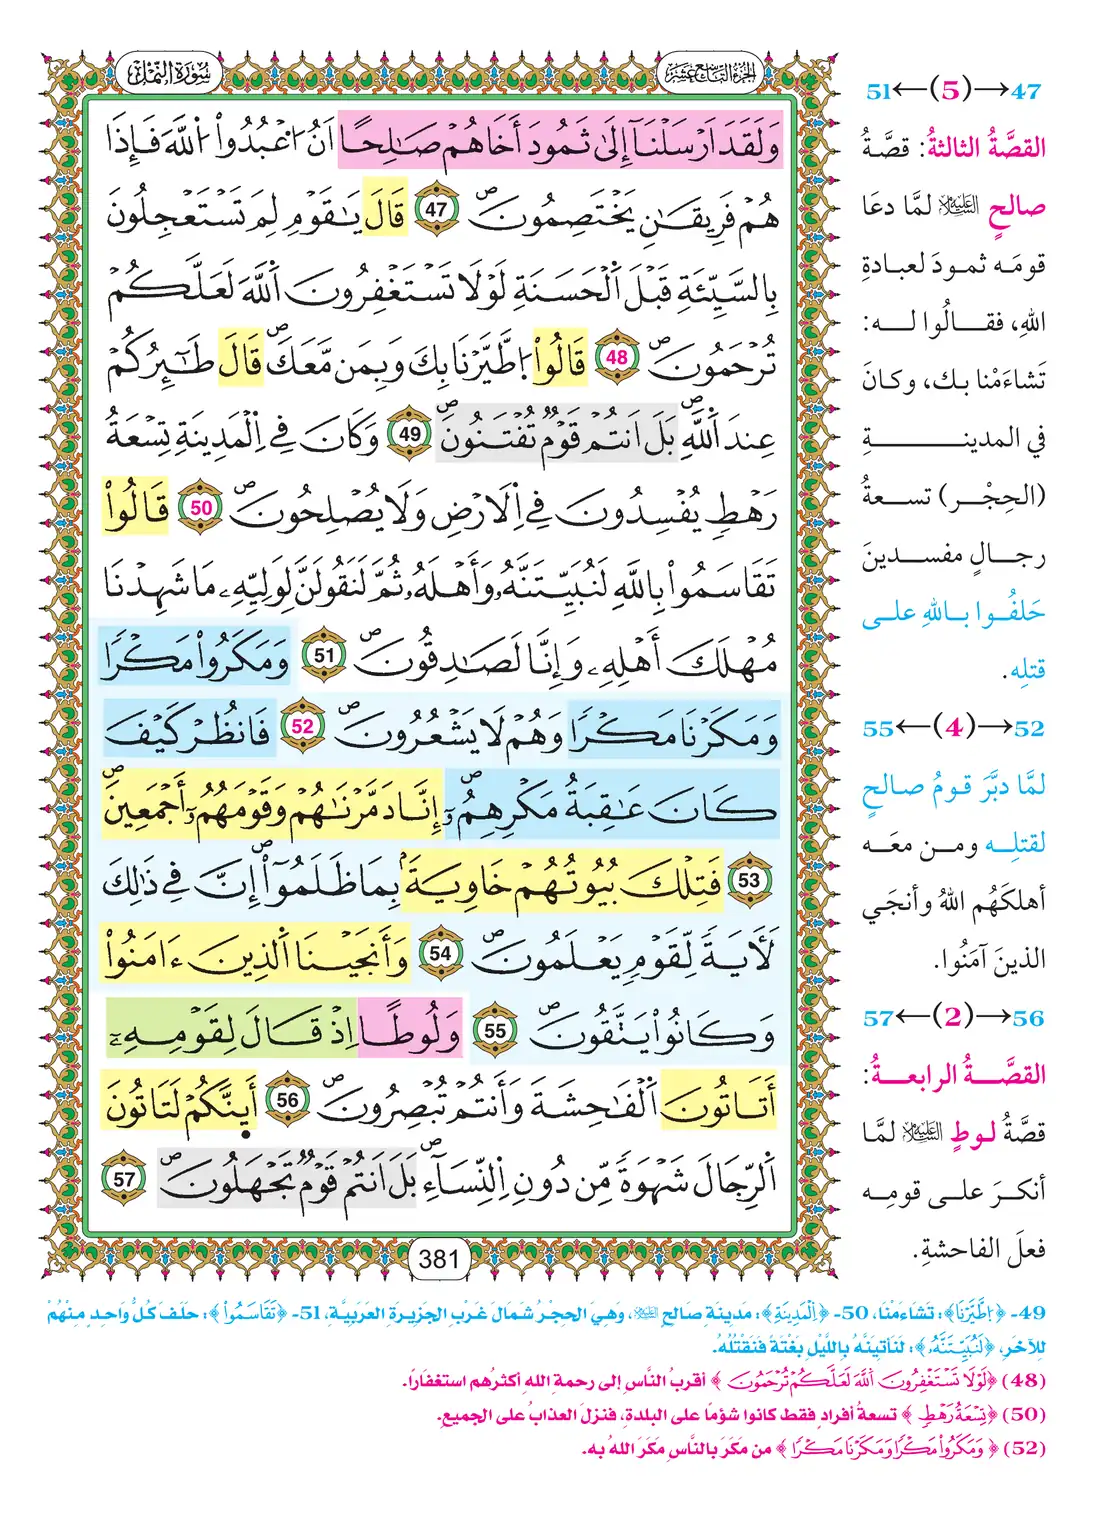 الجزء التاسع عشر
سُورَةُ النَّمْلِ
وَلَقَدَ اَرْسَلْنَآ إِلَىٰ ثَمُودَ أَخَاهُمْ صَـٰلِحًا اَنُ اُعْبُدُواْ اللَّهَ فَإِذَا
هُمْ فَرِيقَـٰنِ يَخْتَصِمُونَ 47 قَالَ يَـٰقَوْمِ لِمَ تَسْتَعْجِلُونَ
بِالسَّيِّئَةِ قَبْلَ اَلْحَسَنَةِ لَوْلَا تَسْتَغْفِرُونَ اَللَّهَ لَعَلَّكُمْ
تُرْحَمُونَ 48 قَالُواْ اُطَّيَّرْنَا بِكَ وَبِمَن مَّعَكَ قَالَ طَـٰٓئِرُكُمْ
عِندَ اَللَّهِ بَلَ اَنتُمْ قَوْمٌ تُفْتَنُونَ 49 وَكَانَ فِي اِلْمَدِينَةِ تِسْعَةُ
رَهْطٍ يُفْسِدُونَ فِي اِلَارْضِ وَلَا يُصْلِحُونَ 50 قَالُواْ
تَقَاسَمُواْ بِاللَّهِ لَنُبَيِّتَنَّهُۥ وَأَهْلَهُۥ ثُمَّ لَنَقُولَنَّ لِوَلِيِّهِۦ مَا شَهِدْنَا
مُهْلَكَ أَهْلِهِۦ وَإِنَّا لَصَـٰدِقُونَ 51 وَمَكَرُواْ مَكْرًا
وَمَكَرْنَا مَكْرًا وَهُمْ لَا يَشْعُرُونَ 52 فَانظُرْ كَيْفَ
كَانَ عَـٰقِبَةُ مَكْرِهِمُۥٓ إِنَّا دَمَّرْنَـٰهُمْ وَقَوْمَهُمُۥٓ أَجْمَعِينَ
53 فَتِلْكَ بُيُوتُهُمْ خَاوِيَةً بِمَا ظَلَمُوٓاْ إِنَّ فِي ذَٰلِكَ
لَأٓيَةً لِّقَوْمٍ يَعْلَمُونَ 54 وَأَنجَيْنَا اَلذِينَ ءَامَنُواْ
وَكَانُواْ يَتَّقُونَ 55 وَلُوطًا اِذْ قَالَ لِقَوْمِهِۦٓ
أَتَاتُونَ اَلْفَـٰحِشَةَ وَأَنتُمْ تُبْصِرُونَ 56 أَىِٕنَّكُمْ لَتَاتُونَ
اَلرِّجَالَ شَهْوَةً مِّن دُونِ اِلنِّسَآءِ بَلَ اَنتُمْ قَوْمٌ تَجْهَلُونَ 57
381
47→(5)←51
القصَّةُ الثالثةُ: قصَّةُ
صالحٍ عليه السلام لمَّا دعَا
قومَه ثمودَ لعبادةِ
اللهِ، فقالُوا له:
تَشاءَمْنا بك، وكانَ
في المدينةِ
(الحِجْر) تسعةُ
رجالٍ مفسدينَ
حَلفُوا باللهِ على
قتلِه.
52→(4)←55
لمَّا دبَّرَ قومُ صالحٍ
لقتلِه ومن معَه
أهلكَهُم اللهُ وأنجَي
الذينَ آمَنُوا.
56→(2)←57
القصَّةُ الرابعةُ:
قصَّةُ لوطٍ عليه السلام لمَّا
أنكرَ على قومِه
فعلَ الفاحشةِ.
49- ﴿اُطَّيَّرْنَا﴾: تَشاءَمْنَا، 50- ﴿اِلْمَدِينَةِ﴾: مَدِينَة صَالحٍ عليه السلام، وَهِيَ الحِجْرُ شَمَالَ غَرْبِ الجَزِيرَةِ العَرَبيَّةِ، 51- ﴿تَقَاسَمُواْ﴾: حَلَفَ كُلُّ وَاحِدٍ مِنْهُمْ
لِلآخَرِ، ﴿لَنُبَيِّتَنَّهُۥ﴾: لَنَأتِيَنَّهُ بِاللَّيْلِ بَغْتَةً فَنَقْتُلُهُ.
(48) ﴿لَوْلَا تَسْتَغْفِرُونَ اَللَّهَ لَعَلَّكُمْ تُرْحَمُونَ﴾ أقربُ النَّاسِ إلى رحمةِ اللهِ أكثرُهم استغفاراً.
(50) ﴿تِسْعَةُ رَهْطٍ﴾ تسعةُ أفرادٍ فقط كانوا شؤمًا على البلدةِ، فنزلَ العذابُ على الجميعِ.
(52) ﴿وَمَكَرُواْ مَكْرًا وَمَكَرْنَا مَكْرًا﴾ من مَكَرَ بالنَّاسِ مَكَرَ اللهُ به.